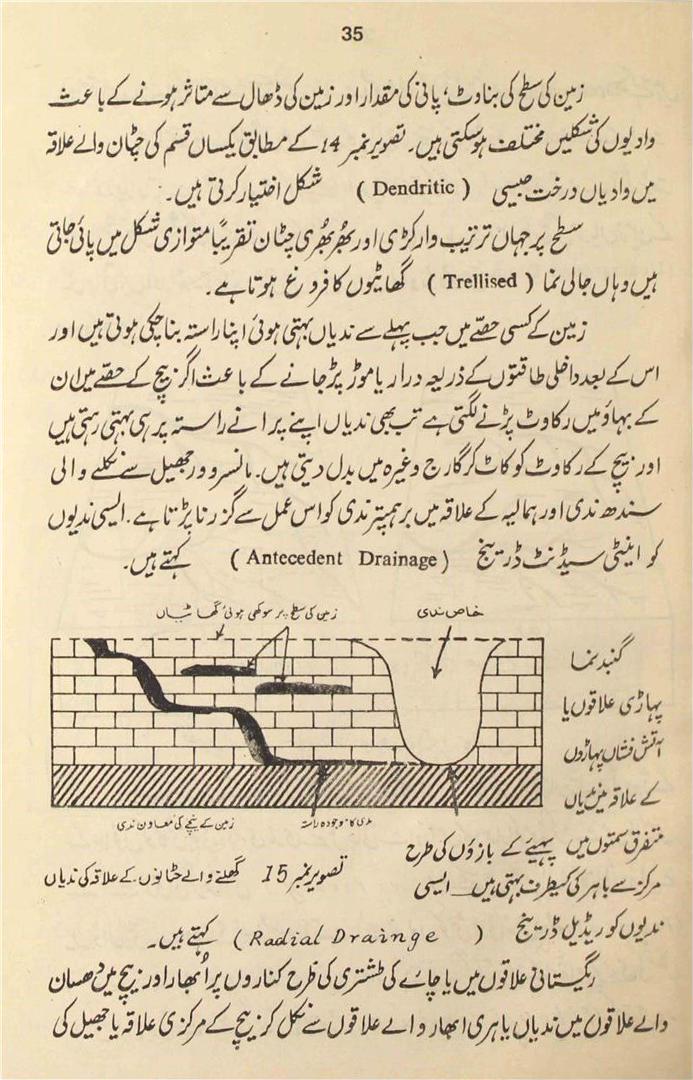 35
زمین کی سطح کی بناوٹ، پانی کی مقدار اور زمین کی ڈھال سے متاثر ہونے کے باعث
وادیوں کی شکلیں مختلف ہوسکتی ہیں۔ تصویر نمبر 14 کے مطابق یکساں قسم کی چٹان والے علاقہ
میں وادیاں درخت جیسی (Dendritic) شکل اختیار کرتی ہیں۔
سطح پر جہاں ترتیب وار کڑی اور بھُربھُری چٹان تقریباً متوازی شکل میں پائی جاتی
ہیں وہاں جالی نما (Trellised) گھاٹیوں کا فروغ ہوتا ہے۔
زمین کے کسی حصّے میں جب پہلے سے ندیاں بہتی ہوئی اپنا راستہ بنا چکی ہوتی ہیں اور
اس کے بعد داخلی طاقتوں کے ذریعہ درار یا موڑ پڑ جانے کے باعث اگر بیچ کے حصّے میں ان
کے بہاؤ میں رکاوٹ پڑنے لگتی ہے تب بھی ندیاں اپنے پرانے راستہ پر ہی بہتی رہتی ہیں
اور بیچ کے رکاوٹ کو کاٹ کر گارج وغیرہ میں بدل دیتی ہیں۔ مانسرور جھیل سے نکلنے والی
سندھ ندی اور ہمالیہ کے علاقہ میں برہمپتر ندی کو اس عمل سے گزرنا پڑتا ہے۔ ایسی ندیوں
کو اینٹی سیڈنٹ ڈرینج (Antecedent Drainage) کہتے ہیں۔
خاص ندی
زمین کی سطح پر سوکھی ہوئی گھاٹیاں
گنبد نما
پہاڑی علاقوں یا
آتش فشاں پہاڑوں
کے علاقہ میں ندیاں
ندی کا موجودہ راستہ
زمین کے نیچے کی معاون ندی
متفرق سمتوں میں پہیئے کے بازوں کی طرح
مرکز سے باہر کی طرف بہتی ہیں۔ ایسی
تصویر نمبر 15 گھلنے والے چٹانوں کے علاقہ کی ندیاں
ندیوں کو ریڈیل ڈرینج (Radial Drainge) کہتے ہیں۔
ریگستانی علاقوں میں یا چائے کی طشتری کی طرح کناروں پر اُبھار اور بیچ میں دھسان
والے علاقوں میں ندیاں باہری ابھار والے علاقوں سے نکل کر بیچ کے مرکزی علاقہ یا جھیل کی